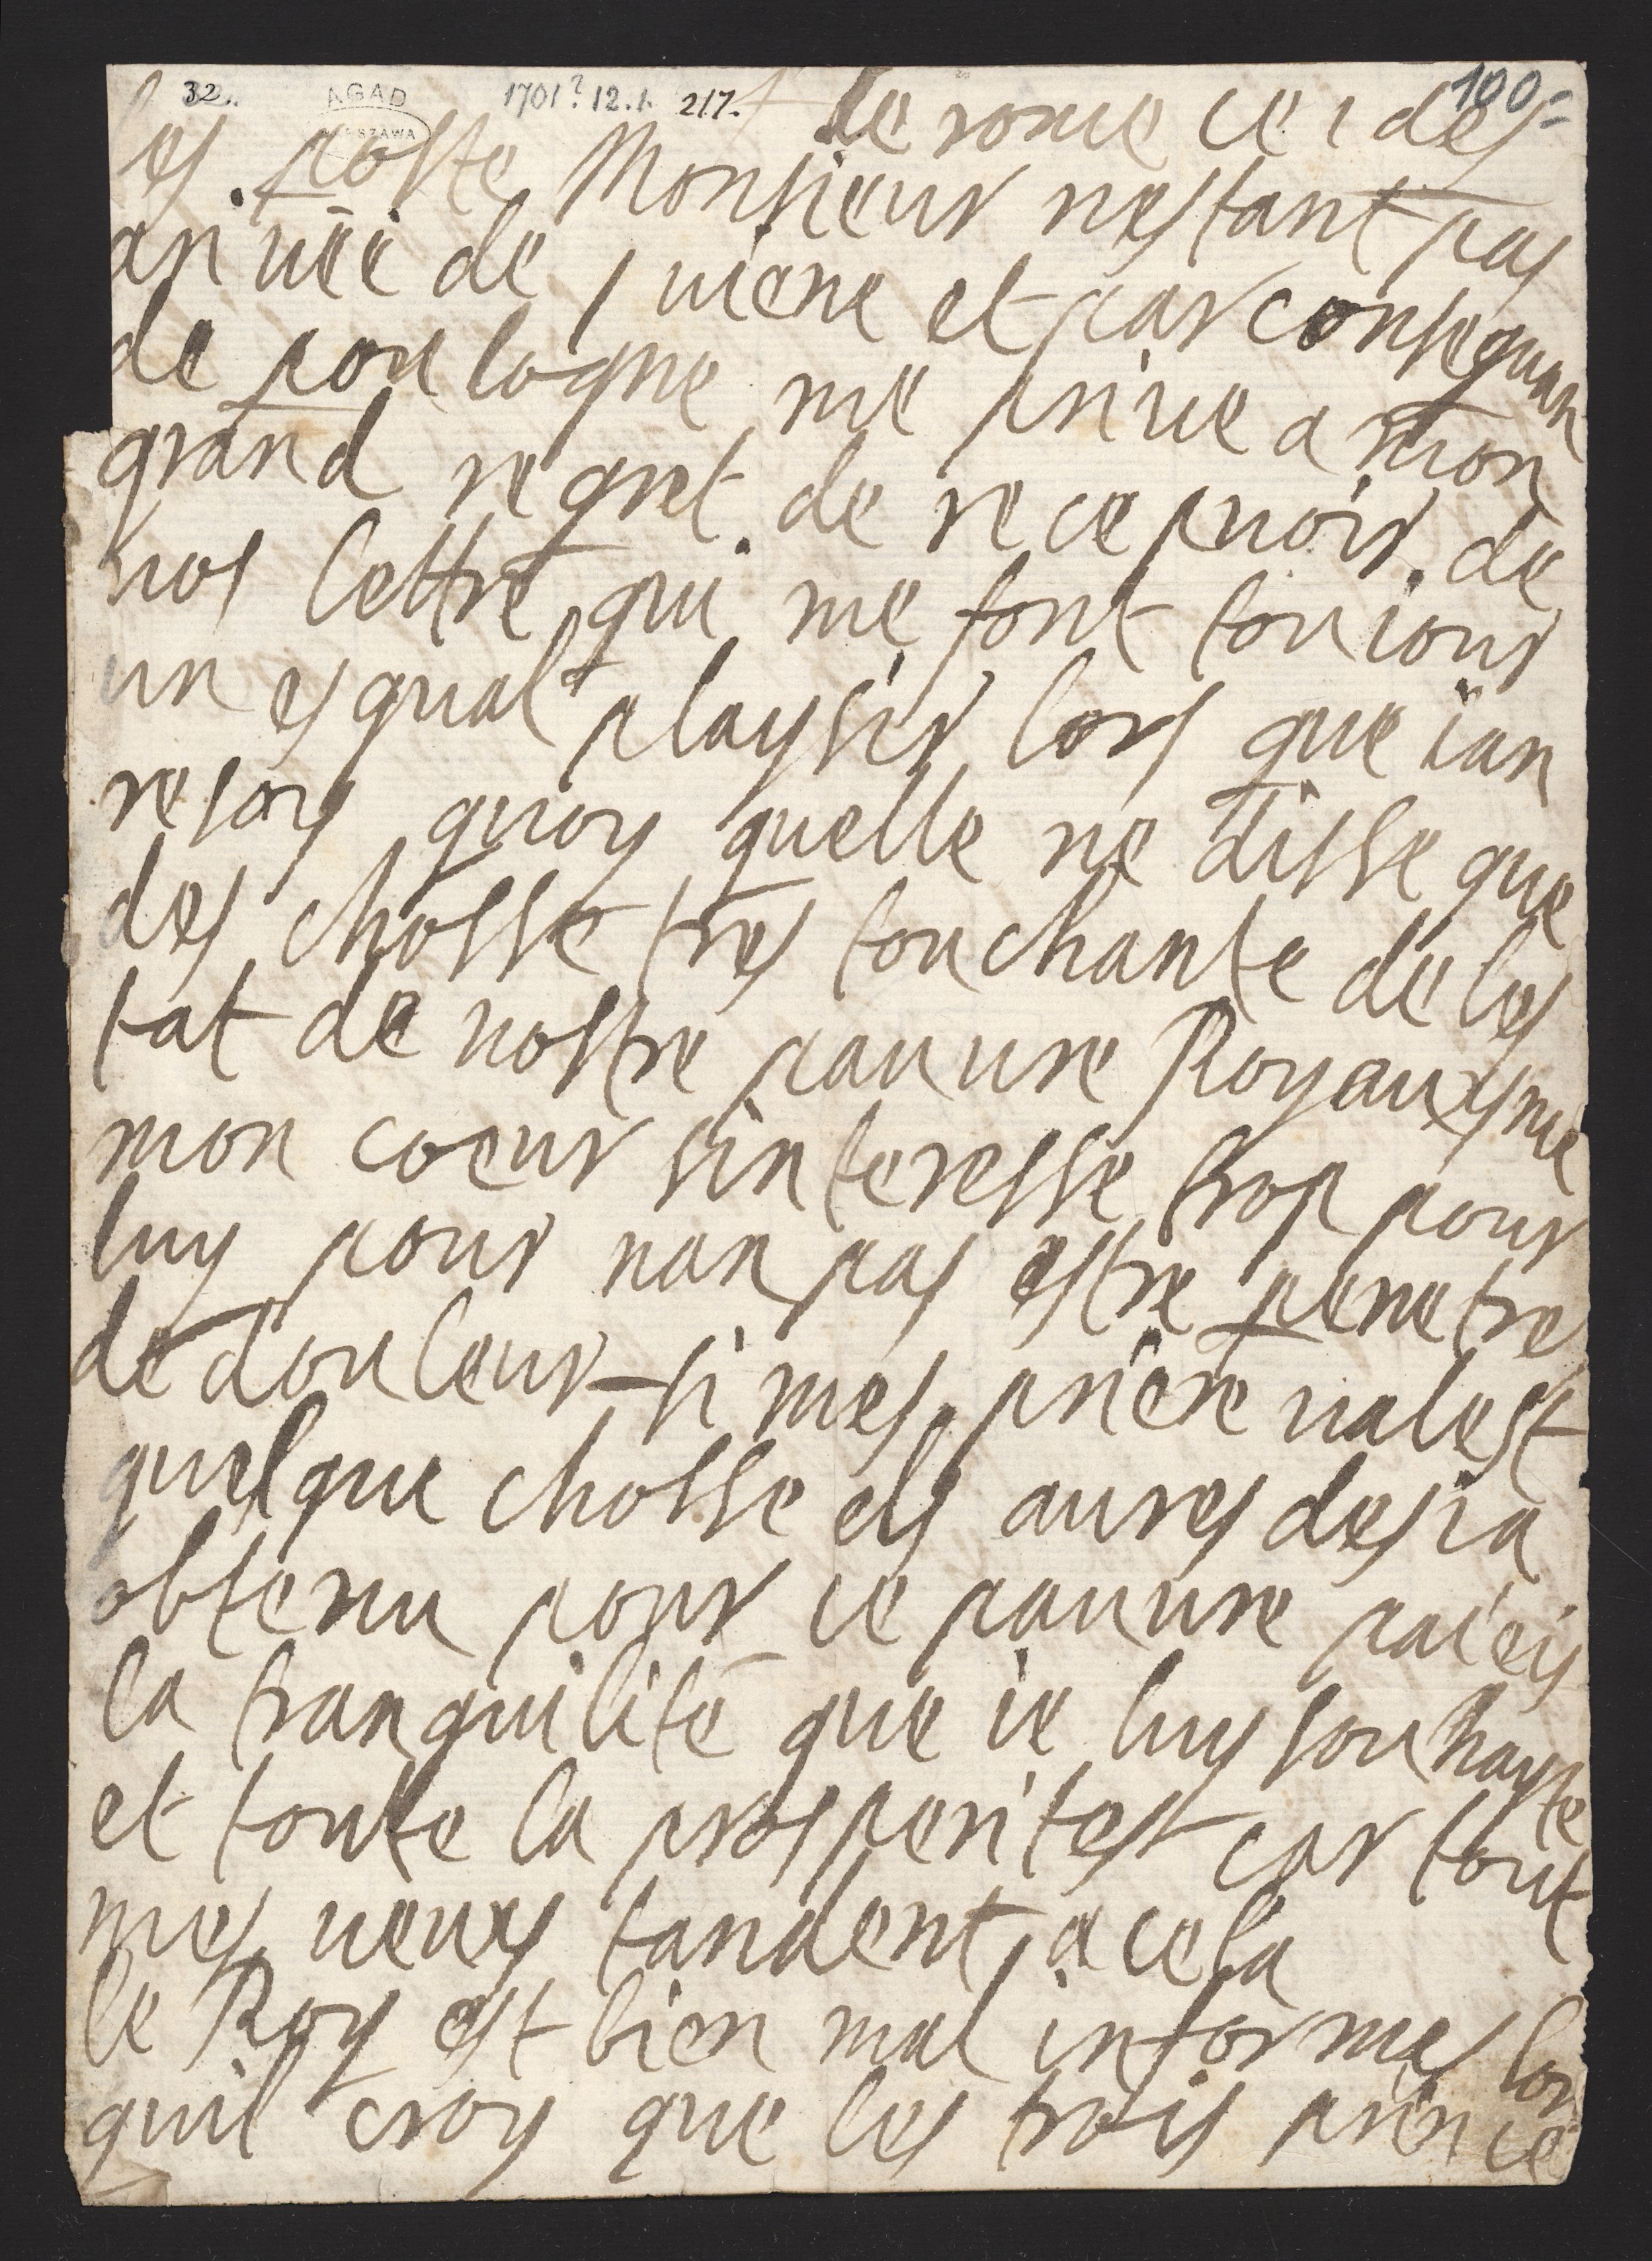 32. AGAD WARSZAWA 1701? 12.1. 217. 100
de rome ce 1 des
les poste Monsieur nestant pas
ariuée de viene et par consequan
de poulogne me priue a mon
grand regret de recepuoir de
uos lettre qui me font touiour
un esqual playsir lors que ian
resoys quoy quelle ne disse que
des chosse tres touchante de les
tat de nostre pauure Royauxsme
mon coeur sinteresse trop pour
luy pour nan pas estre penetre
de douleur si mes priere valest
quelque chosse els aures desia
obtenu pour ce pauure païeis
la tranquilité que ie luy souhayste
et toute la prosperitest car tout
mes ueuxs tandent a cela
le Roy est bien mal informes lor
quil croy que les trois prince